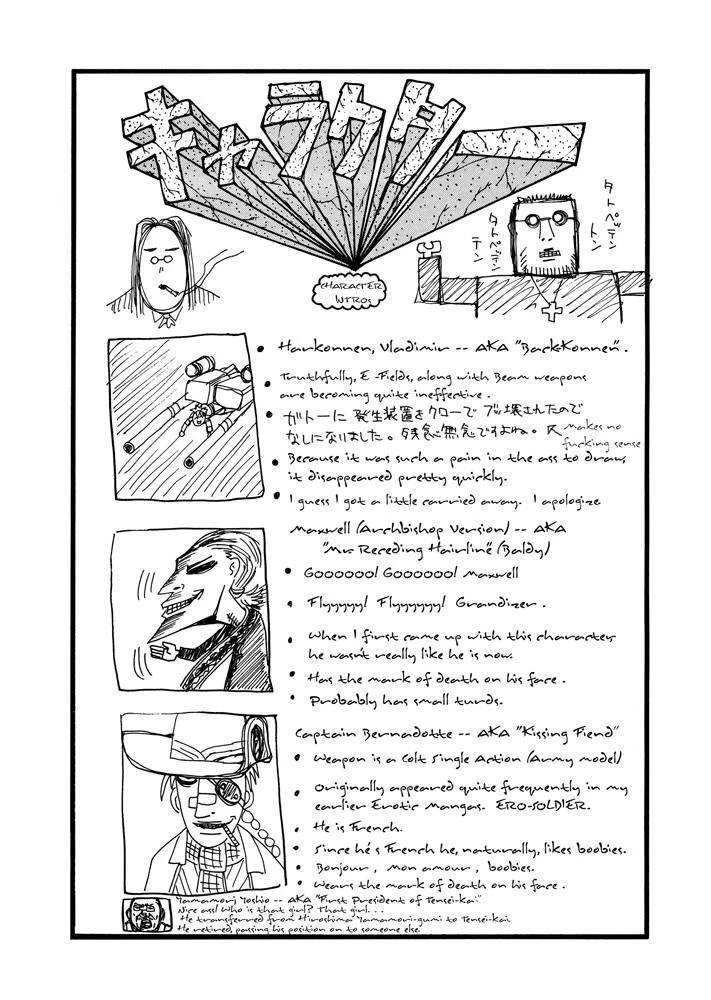 キャラクター
CHARACTER
INTROS
タトペッテン
トン
タトペッテン
テン
Harkonnen, Vladimir -- AKA "Back-Konnen".
Truthfully, E-Fields, along with Beam weapons
are becoming quite ineffective.
ガトーに発生装置をクローでブッ壊されたので
なしになりました。残念無念ですよね。
makes no
fucking sense
Because it was such a pain in the ass to draw,
it disappeared pretty quickly.
I guess I got a little carried away. I apologize
Maxwell (Archbishop Version) -- AKA
"Mr. Receding Hairline" (Baldy)
Goooooo! Goooooo! Maxwell
Flyyyyy! Flyyyyyy! Grandizer.
When I first came up with this character
he wasn't really like he is now.
Has the mark of death on his face.
Probably has small turds.
Captain Bernadotte -- AKA "Kissing Fiend"
Weapon is a Colt Single Action (Army model)
Originally appeared quite frequently in my
earlier Erotic Mangas. ERO-SOLDIER.
He is French.
Since he's French he, naturally, likes boobies.
Bonjour, mon amour, boobies.
Wears the mark of death on his face.
Yamamori Yoshio -- AKA "First President of Tensei-kai"
Nice ass! Who is that girl? That girl...
He transferred from Hiroshima Yamamori-gumi to Tensei-kai.
He retired, passing his position on to someone else